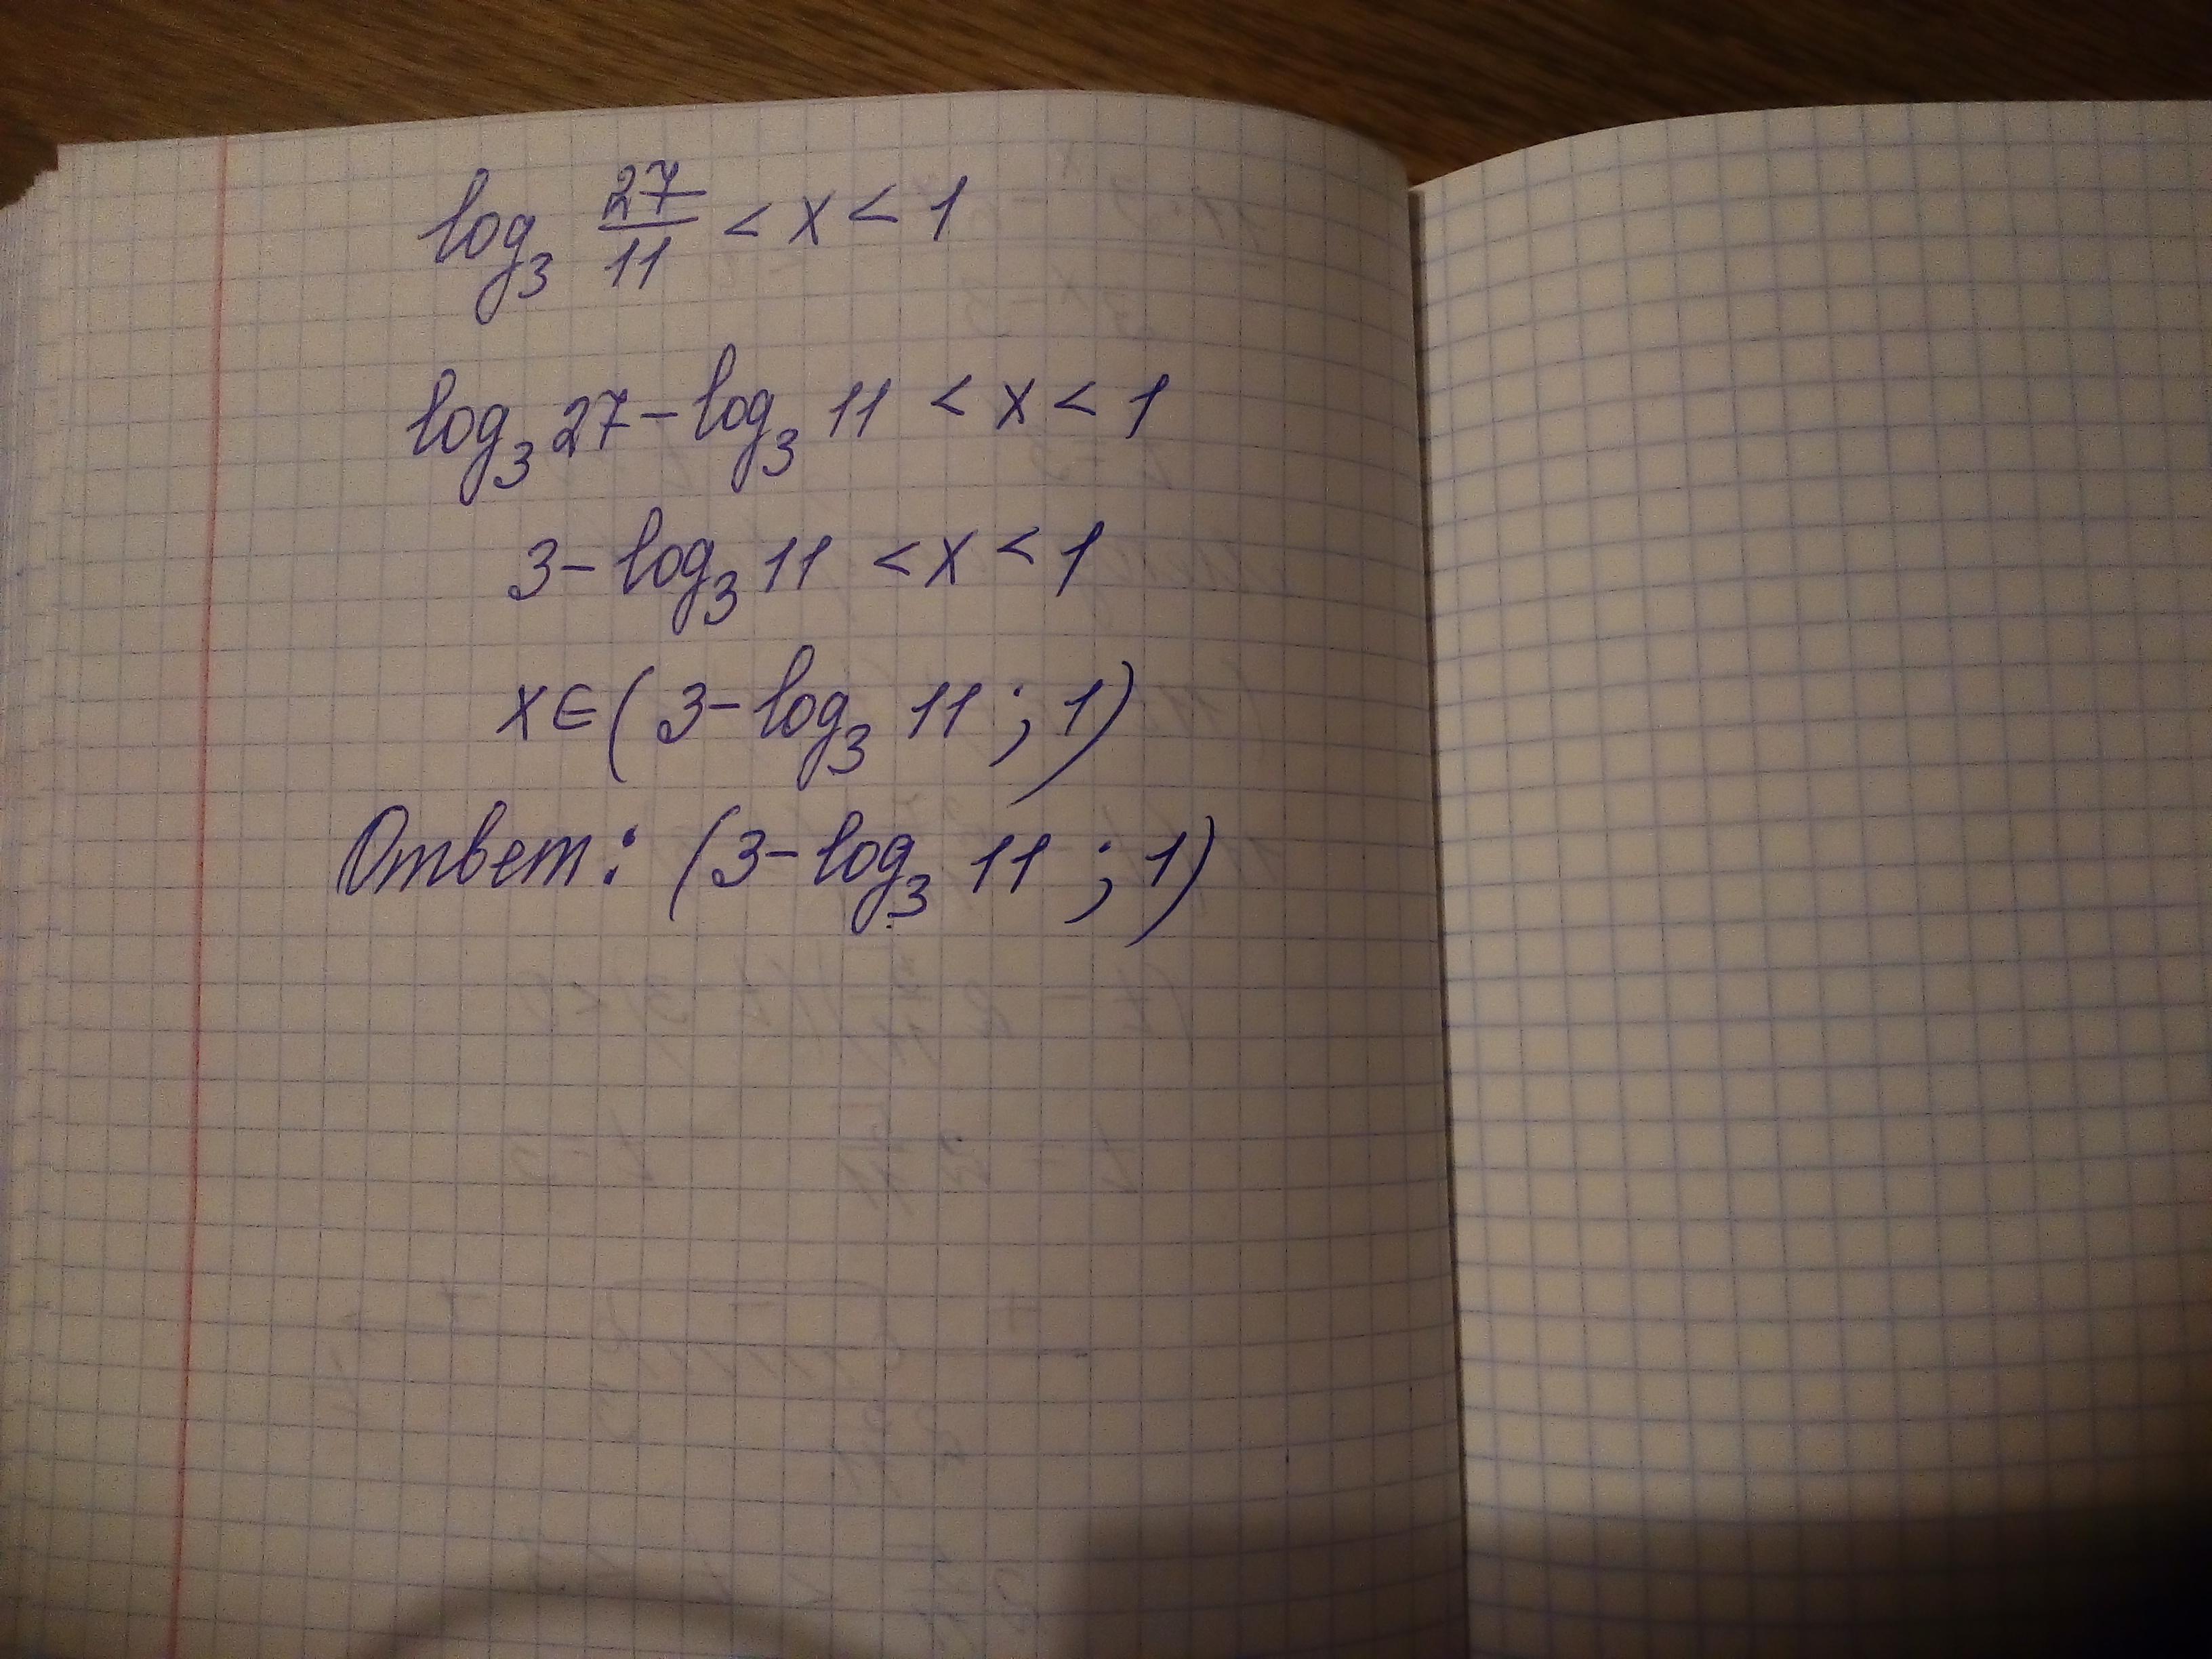 log₃ 27/11 < x < 1
log₃ 27 - log₃ 11 < x < 1
3 - log₃ 11 < x < 1
x ∈ (3 - log₃ 11 ; 1)
Ответ: (3 - log₃ 11 ; 1)